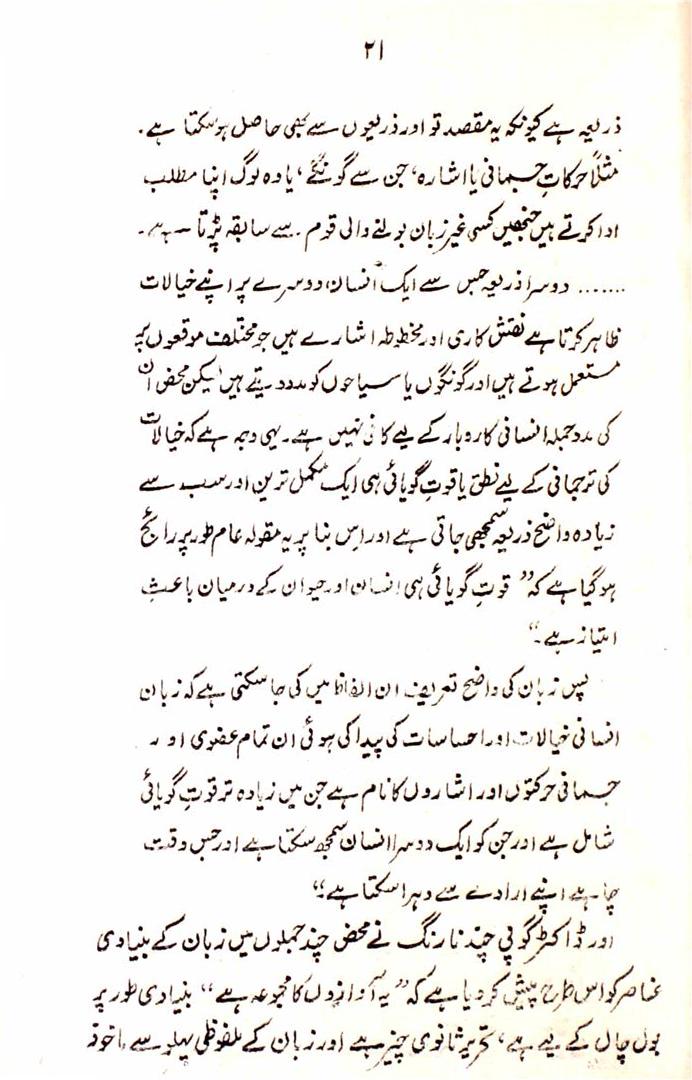 ۲۱
ذریعہ ہے کیونکہ یہ مقصد تو اور ذریعوں سے بھی حاصل ہو سکتا ہے.
مثلاً حرکاتِ جسمانی یا اشارہ، جن سے گونگے، یا وہ لوگ اپنا مطلب
ادا کرتے ہیں جنھیں کسی غیر زبان بولنے والی قوم سے سابقہ پڑتا ہے۔
....... دوسرا ذریعہ جس سے ایک انسان دوسرے پر اپنے خیالات
ظاہر کرتا ہے نقش کاری اور مخطوطہ اشارے ہیں جو مختلف موقعوں پر
مستعمل ہوتے ہیں اور گونگوں یا سیاحوں کو مدد دیتے ہیں لیکن محض ان
کی مدد جملہ انسانی کاروبار کے لیے کافی نہیں ہے۔ یہی وجہ ہے کہ خیالات
کی ترجمانی کے لیے نطق یا قوتِ گویائی ہی ایک مکمل ترین اور سب سے
زیادہ واضح ذریعہ سمجھی جاتی ہے اور اس بنا پر یہ مقولہ عام طور پر رائج
ہو گیا ہے کہ ”قوتِ گویائی ہی انسان اور حیوان کے درمیان باعثِ
امتیاز ہے۔“
پس زبان کی واضح تعریف ان الفاظ میں کی جا سکتی ہے کہ زبان
انسانی خیالات اور احساسات کی پیدا کی ہوئی ان تمام عضوی اور
جسمانی حرکتوں اور اشاروں کا نام ہے جن میں زیادہ تر قوتِ گویائی
شامل ہے اور جن کو ایک دوسرا انسان سمجھ سکتا ہے اور جس وقت
چاہے اپنے ارادے سے دہرا سکتا ہے“
اور ڈاکٹر گوپی چند نارنگ نے محض چند جملوں میں زبان کے بنیادی
عناصر کو اس طرح پیش کر دیا ہے کہ ”یہ آوازوں کا مجموعہ ہے“ بنیادی طور پر
بول چال کے لیے ہے، تحریر ثانوی چیز ہے اور زبان کے ملفوظی پہلو سے ماخوذ